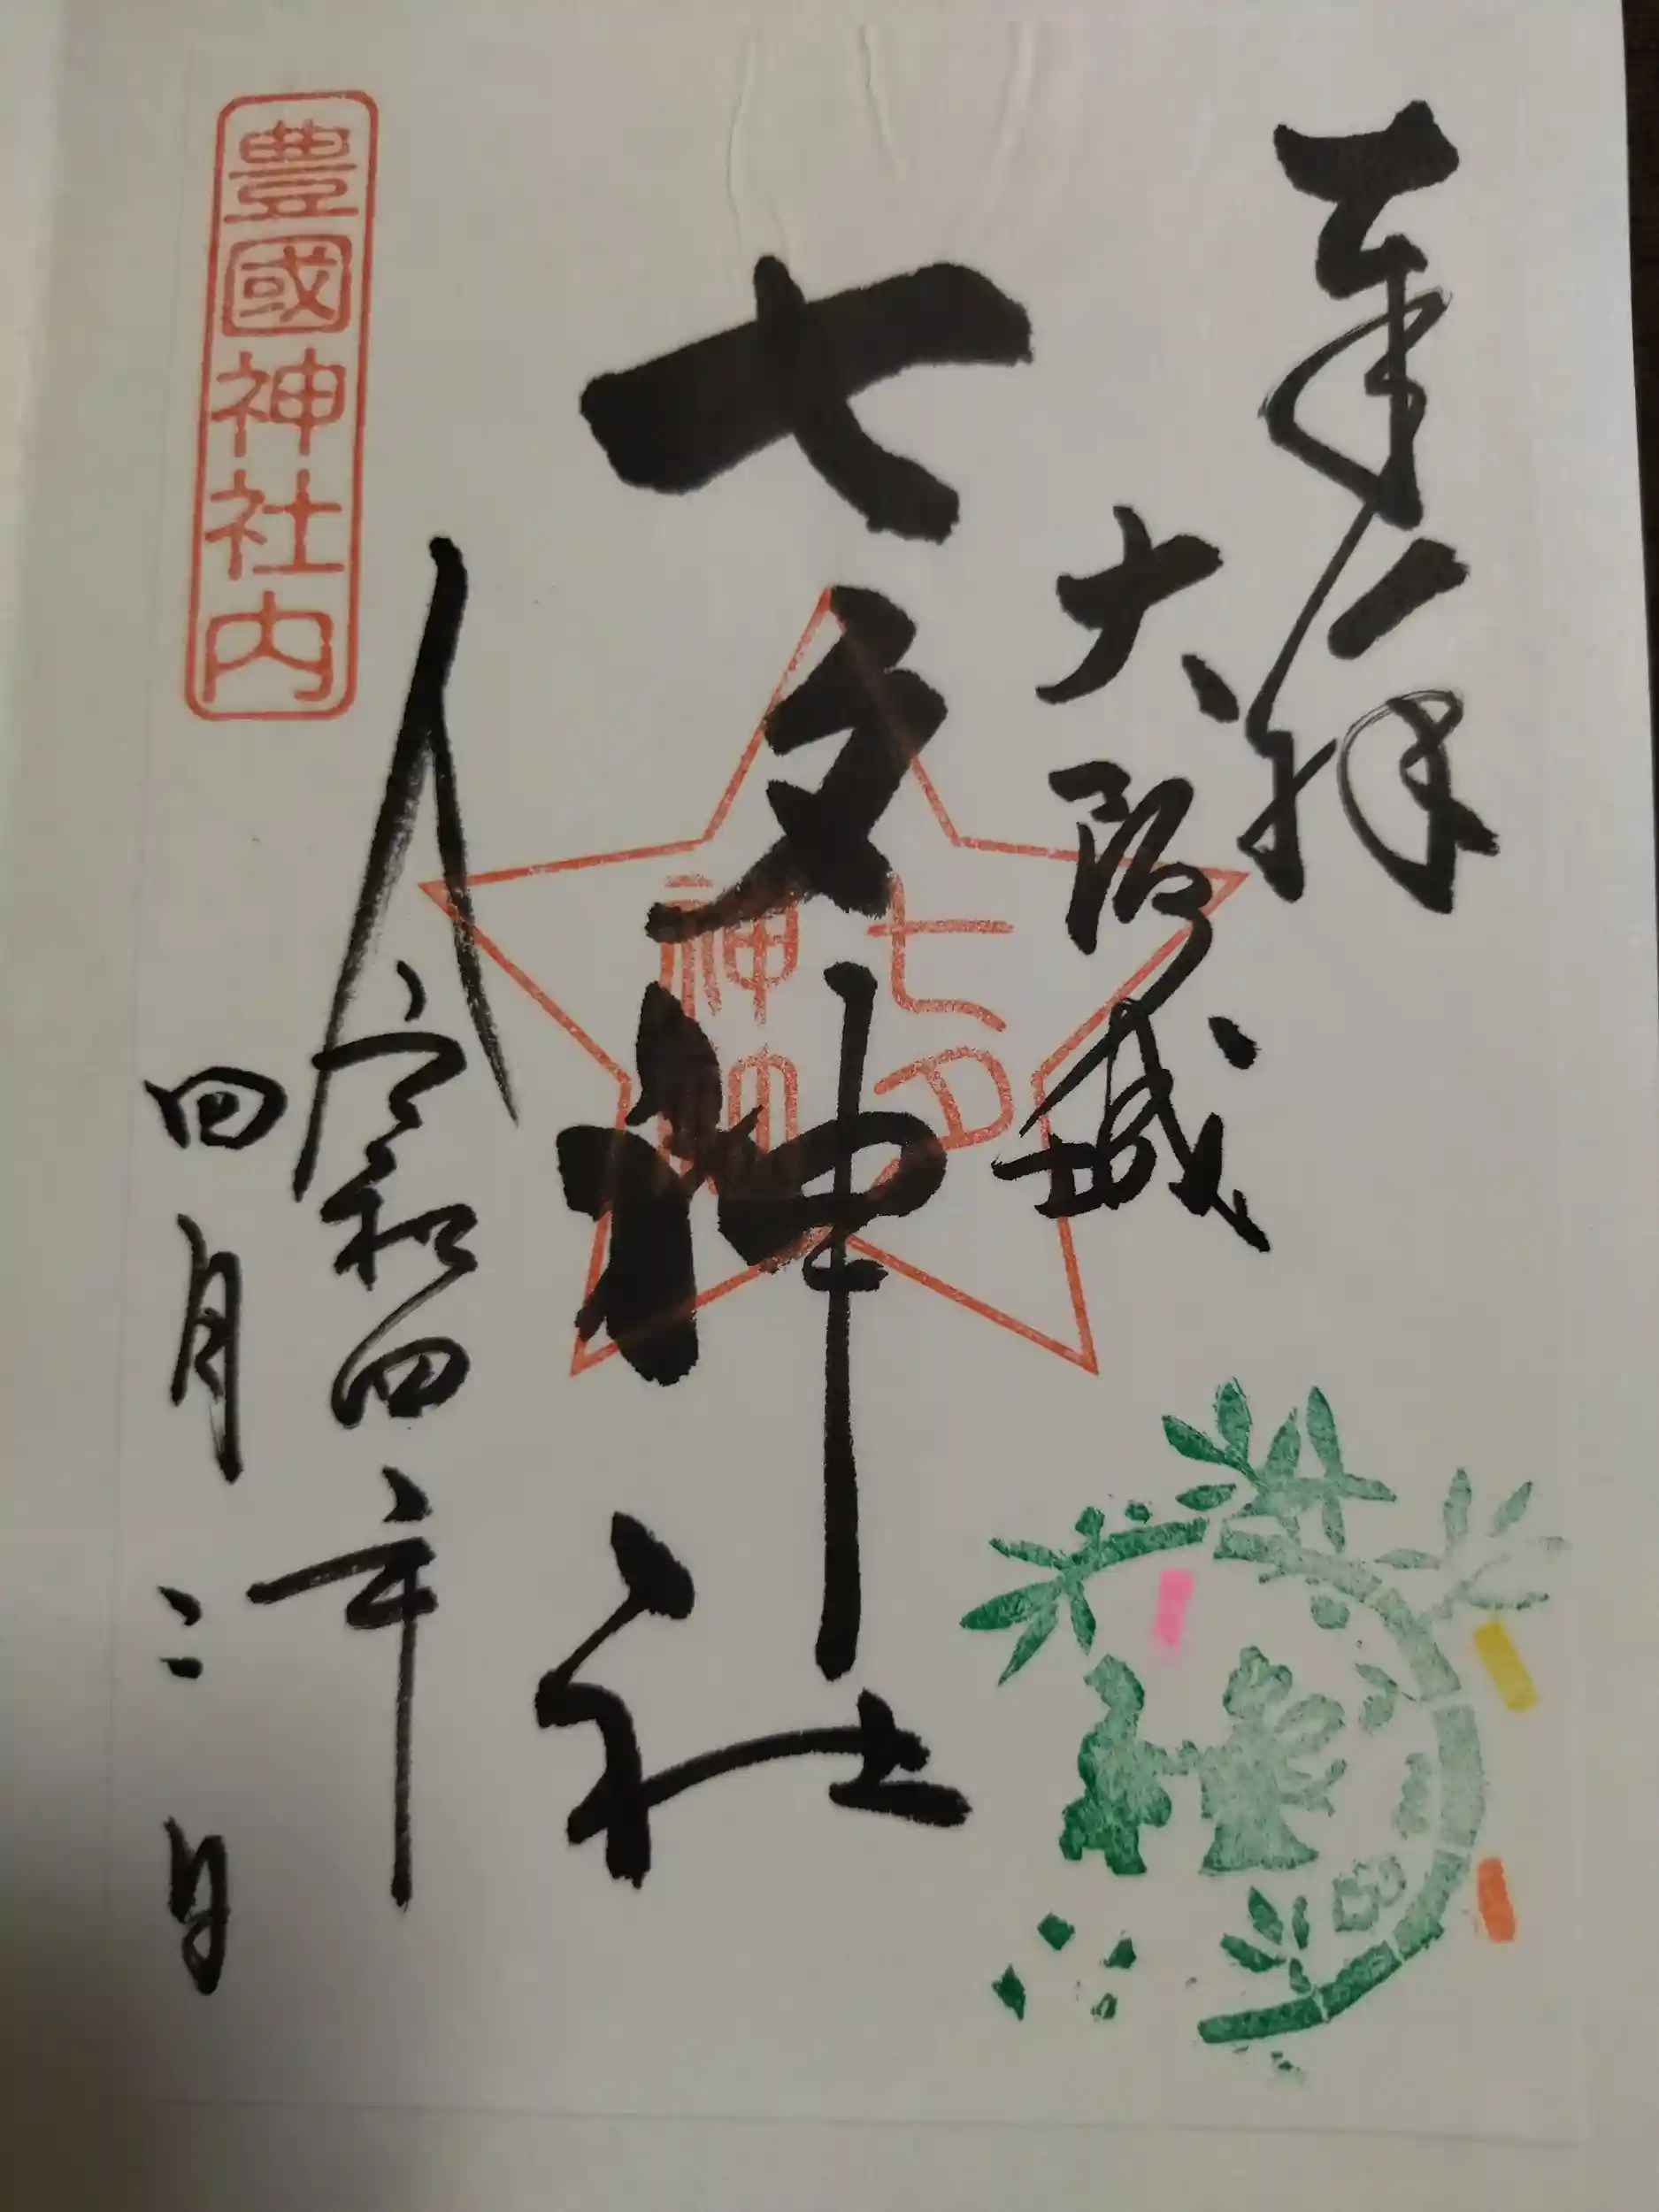 奉拝
大阪城
七夕神社
七夕
神社
令和四年
四月二日
豊國神社内